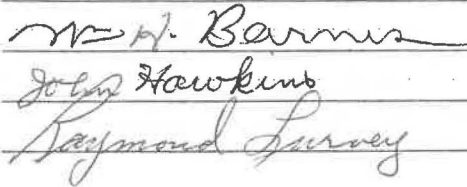 Wm H. Barnes
John Hawkins
Raymond Survey